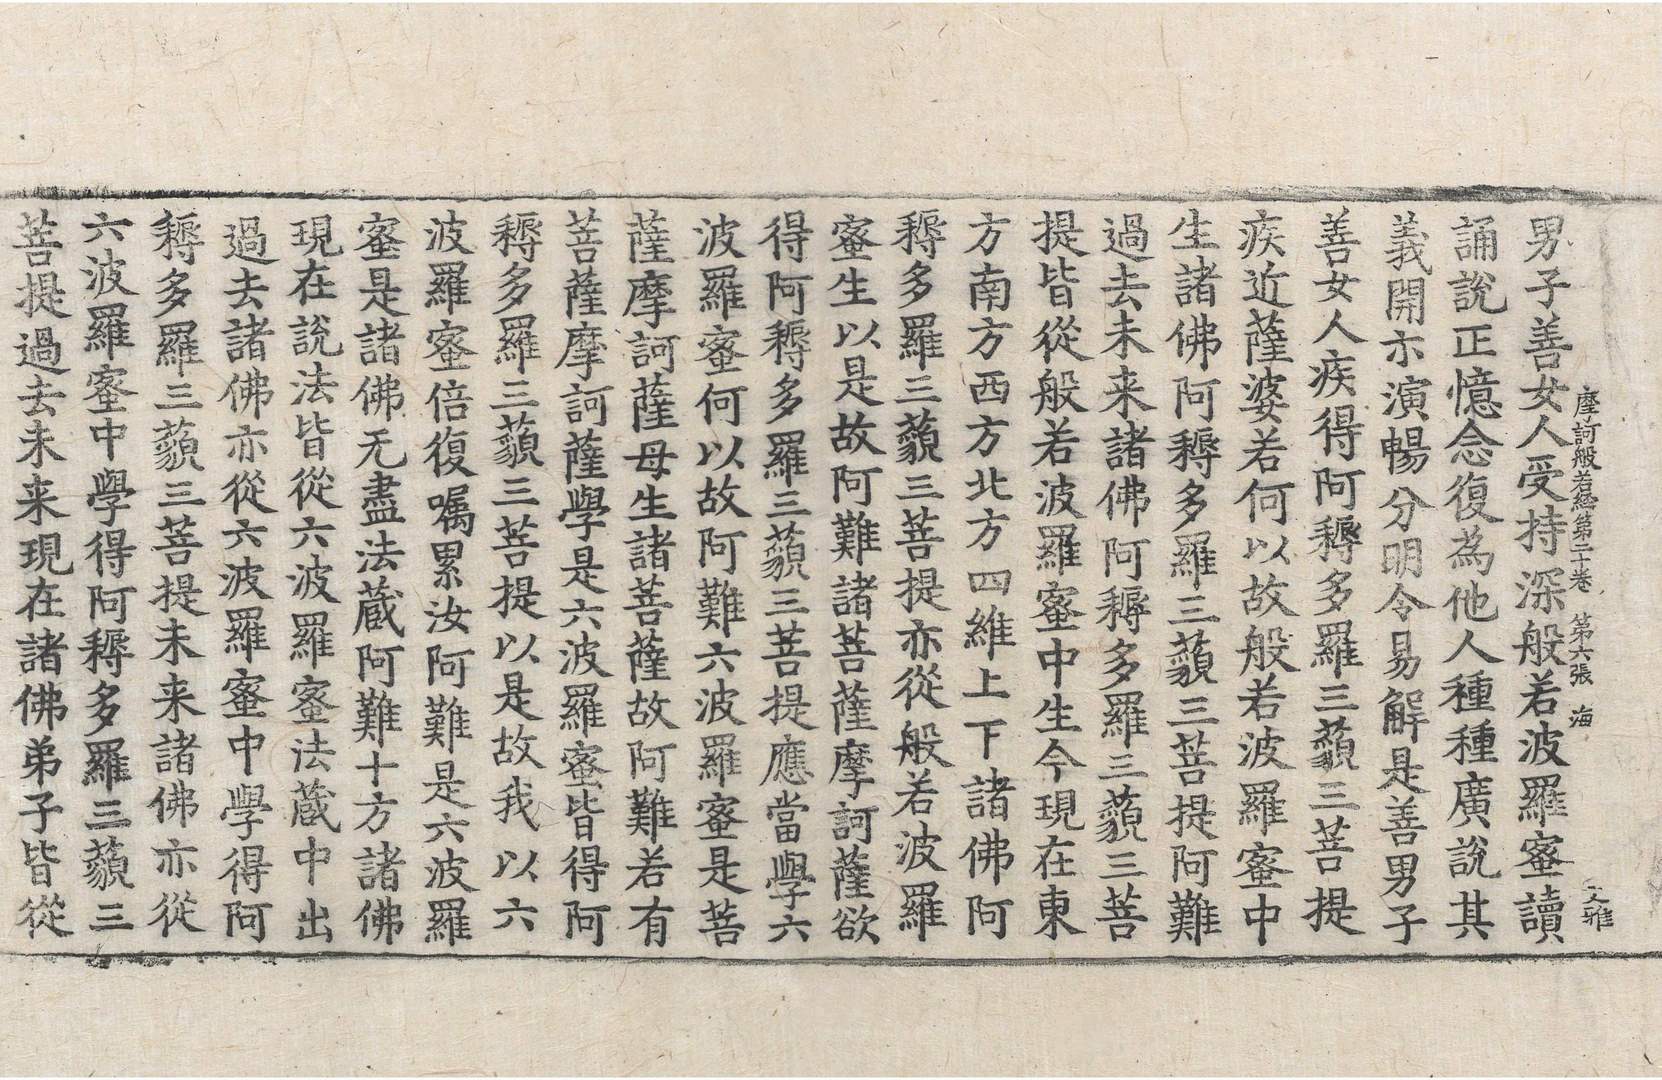 摩訶般若經第二十卷 第六張 海
文雅
男子善女人受持深般若波羅蜜讀
誦說正憶念復為他人種種廣說其
義開示演暢分明令易解是善男子
善女人疾得阿耨多羅三藐三菩提
疾近薩婆若何以故般若波羅蜜中
生諸佛阿耨多羅三藐三菩提阿難
過去未来諸佛阿耨多羅三藐三菩
提皆從般若波羅蜜中生今現在東
方南方西方北方四維上下諸佛阿
耨多羅三藐三菩提亦從般若波羅
蜜生以是故阿難諸菩薩摩訶薩欲
得阿耨多羅三藐三菩提應當學六
波羅蜜何以故阿難六波羅蜜是菩
薩摩訶薩母生諸菩薩故阿難若有
菩薩摩訶薩學是六波羅蜜皆得阿
耨多羅三藐三菩提以是故我以六
波羅蜜倍復囑累汝阿難是六波羅
蜜是諸佛无盡法藏阿難十方諸佛
現在說法皆從六波羅蜜法藏中出
過去諸佛亦從六波羅蜜中學得阿
耨多羅三藐三菩提未来諸佛亦從
六波羅蜜中學得阿耨多羅三藐三
菩提過去未来現在諸佛弟子皆從